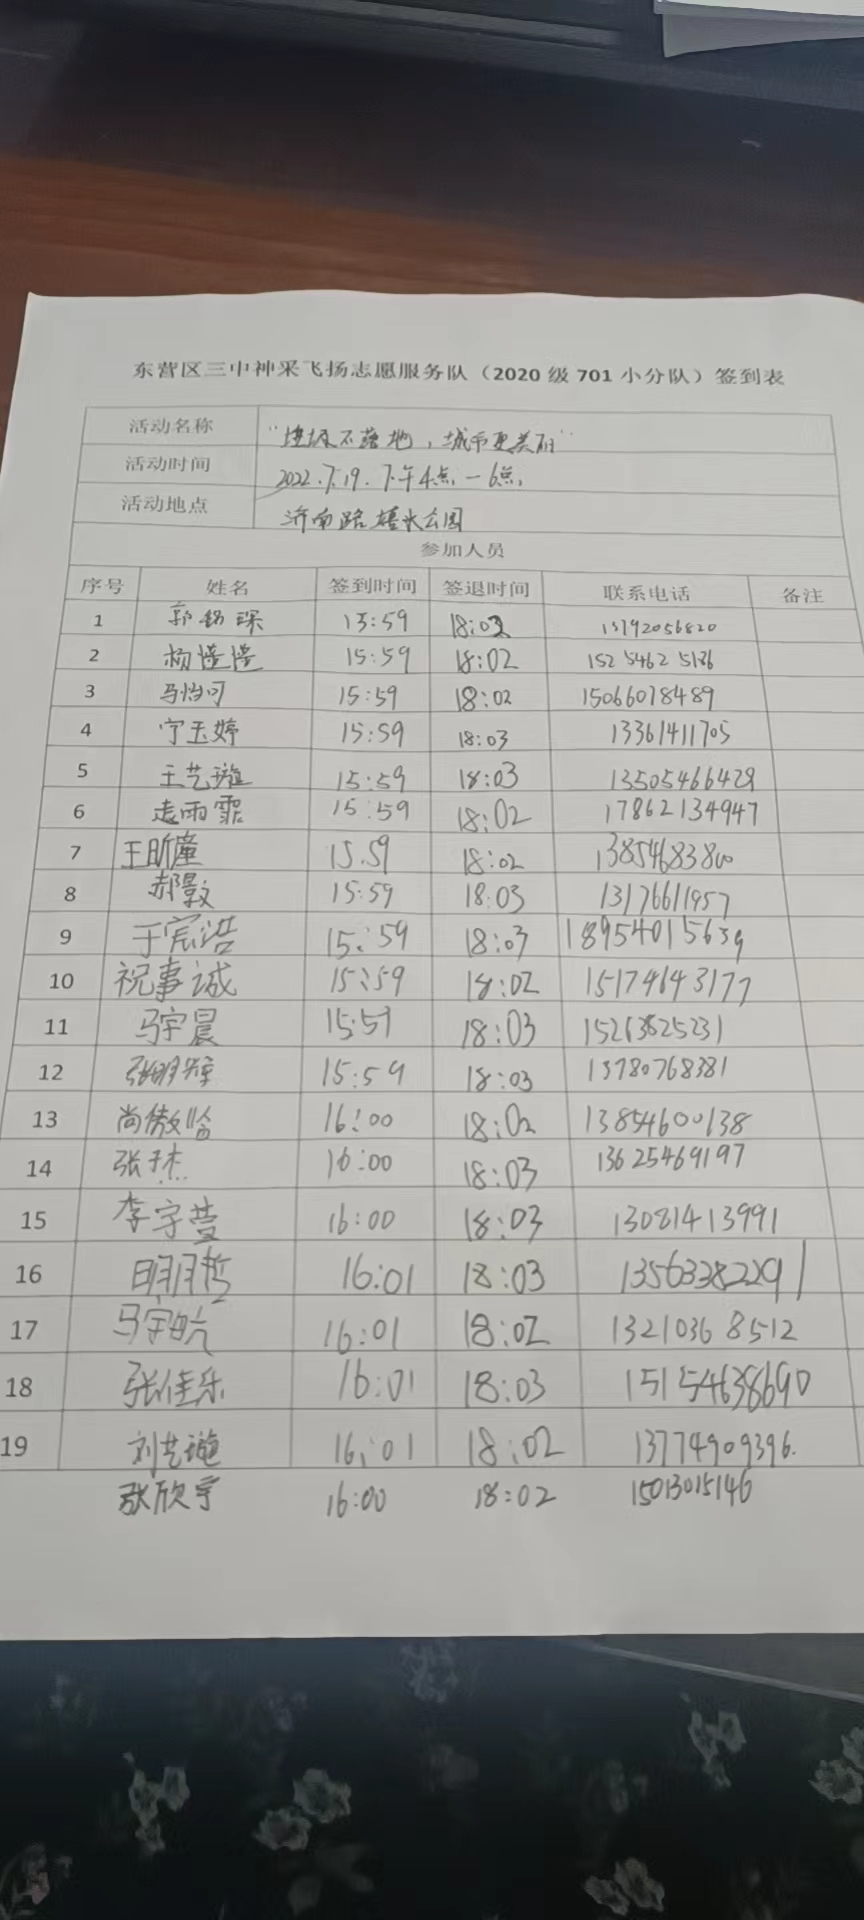 东营区三中神采飞扬志愿服务队（2020 级 701 小分队）签到表
活动名称 "垃圾不落地，城市更美丽"
活动时间 2022.7.19.下午4点—6点
活动地点 济南路 公园
参加人员
序号 姓名 签到时间 签退时间 联系电话 备注
1 15:59 18:03 13792056820
2 杨 15:59 18:02 152 5462 5136
3 马怡可 15:59 18:02 15066018489
4 宁玉婷 15:59 18:03 13361411705
5 王艺璇 15:59 18:03 13505466429
6 雨霏 15:59 18:02 17862134947
7 王昕童 15.59 18:02 13854683800
8 郝 15:59 18:03 13176611957
9 于宸浩 15:59 18:03 18954015639
10 祝事诚 15:59 18:02 15174643177
11 马宇晨 15:59 18:03 15263825231
12 张明 15:59 18:03 13780768381
13 尚傲 16:00 18:02 13854600138
14 张子杰 16:00 18:03 13625469197
15 李宇萱 16:00 18:03 13081413991
16 明哲 16:01 18:03
17 马宇航 16:01 18:02 1321036 8512
18 张佳乐 16:01 18:03 15154638690
19 刘艺璇 16:01 18:02 13774909396.
张欣宇 16:00 18:02 15013015146